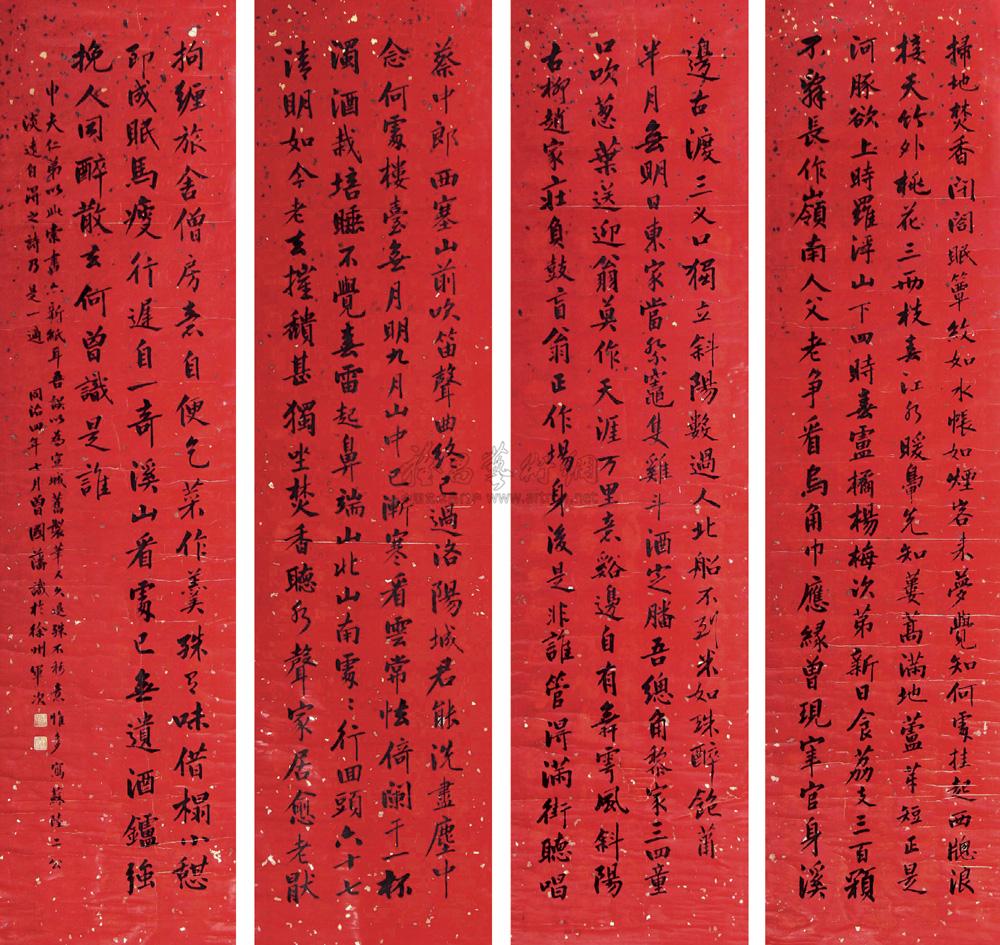 掃地焚香閉閤眠簟紋如水帳如煙客來夢覺知何處挂起西牕浪
接天竹外桃花三兩枝春江水暖鳥先知蔞蒿滿地蘆芽短正是
河豚欲上時羅浮山下四時春盧橘楊梅次第新日食荔支三百顆
不辭長作嶺南人父老爭看烏角巾應緣曾現宰官身溪
邊古渡三叉口獨立斜陽數過人北船不到米如珠醉飽蕭
條半月無明日東家當祭竈隻雞斗酒定膰吾總角黎家三四童
口吹蔥葉送迎翁莫作天涯万里意谿邊自有舞雩風斜陽
古柳趙家莊負鼓盲翁正作場身後是非誰管得滿街聽唱
蔡中郎西塞山前吹笛聲曲終已過洛陽城君能洗盡塵中
念何處樓臺無月明九月山中已漸寒看雲常怯倚闌干一杯
濁酒栽培睡不覺春雷起鼻端山北山南處〻行回頭六十七
清明如今老去摧頹甚獨坐焚香聽水聲家居愈老厭
拘纏旅舍僧房意自便乞菜作羹殊有味借榻小憩
即成眠馬瘦行遲自一奇溪山看處已無遺酒鑪強
挽人同醉散去何曾識是誰
中夫仁弟以此索書亦新紙耳吾誤以為宣城舊製筆入久退殊不称意惟多寫蘇陸二公
淡遠自得之詩乃是一適 同治四年七月曾國藩識於徐州軍次